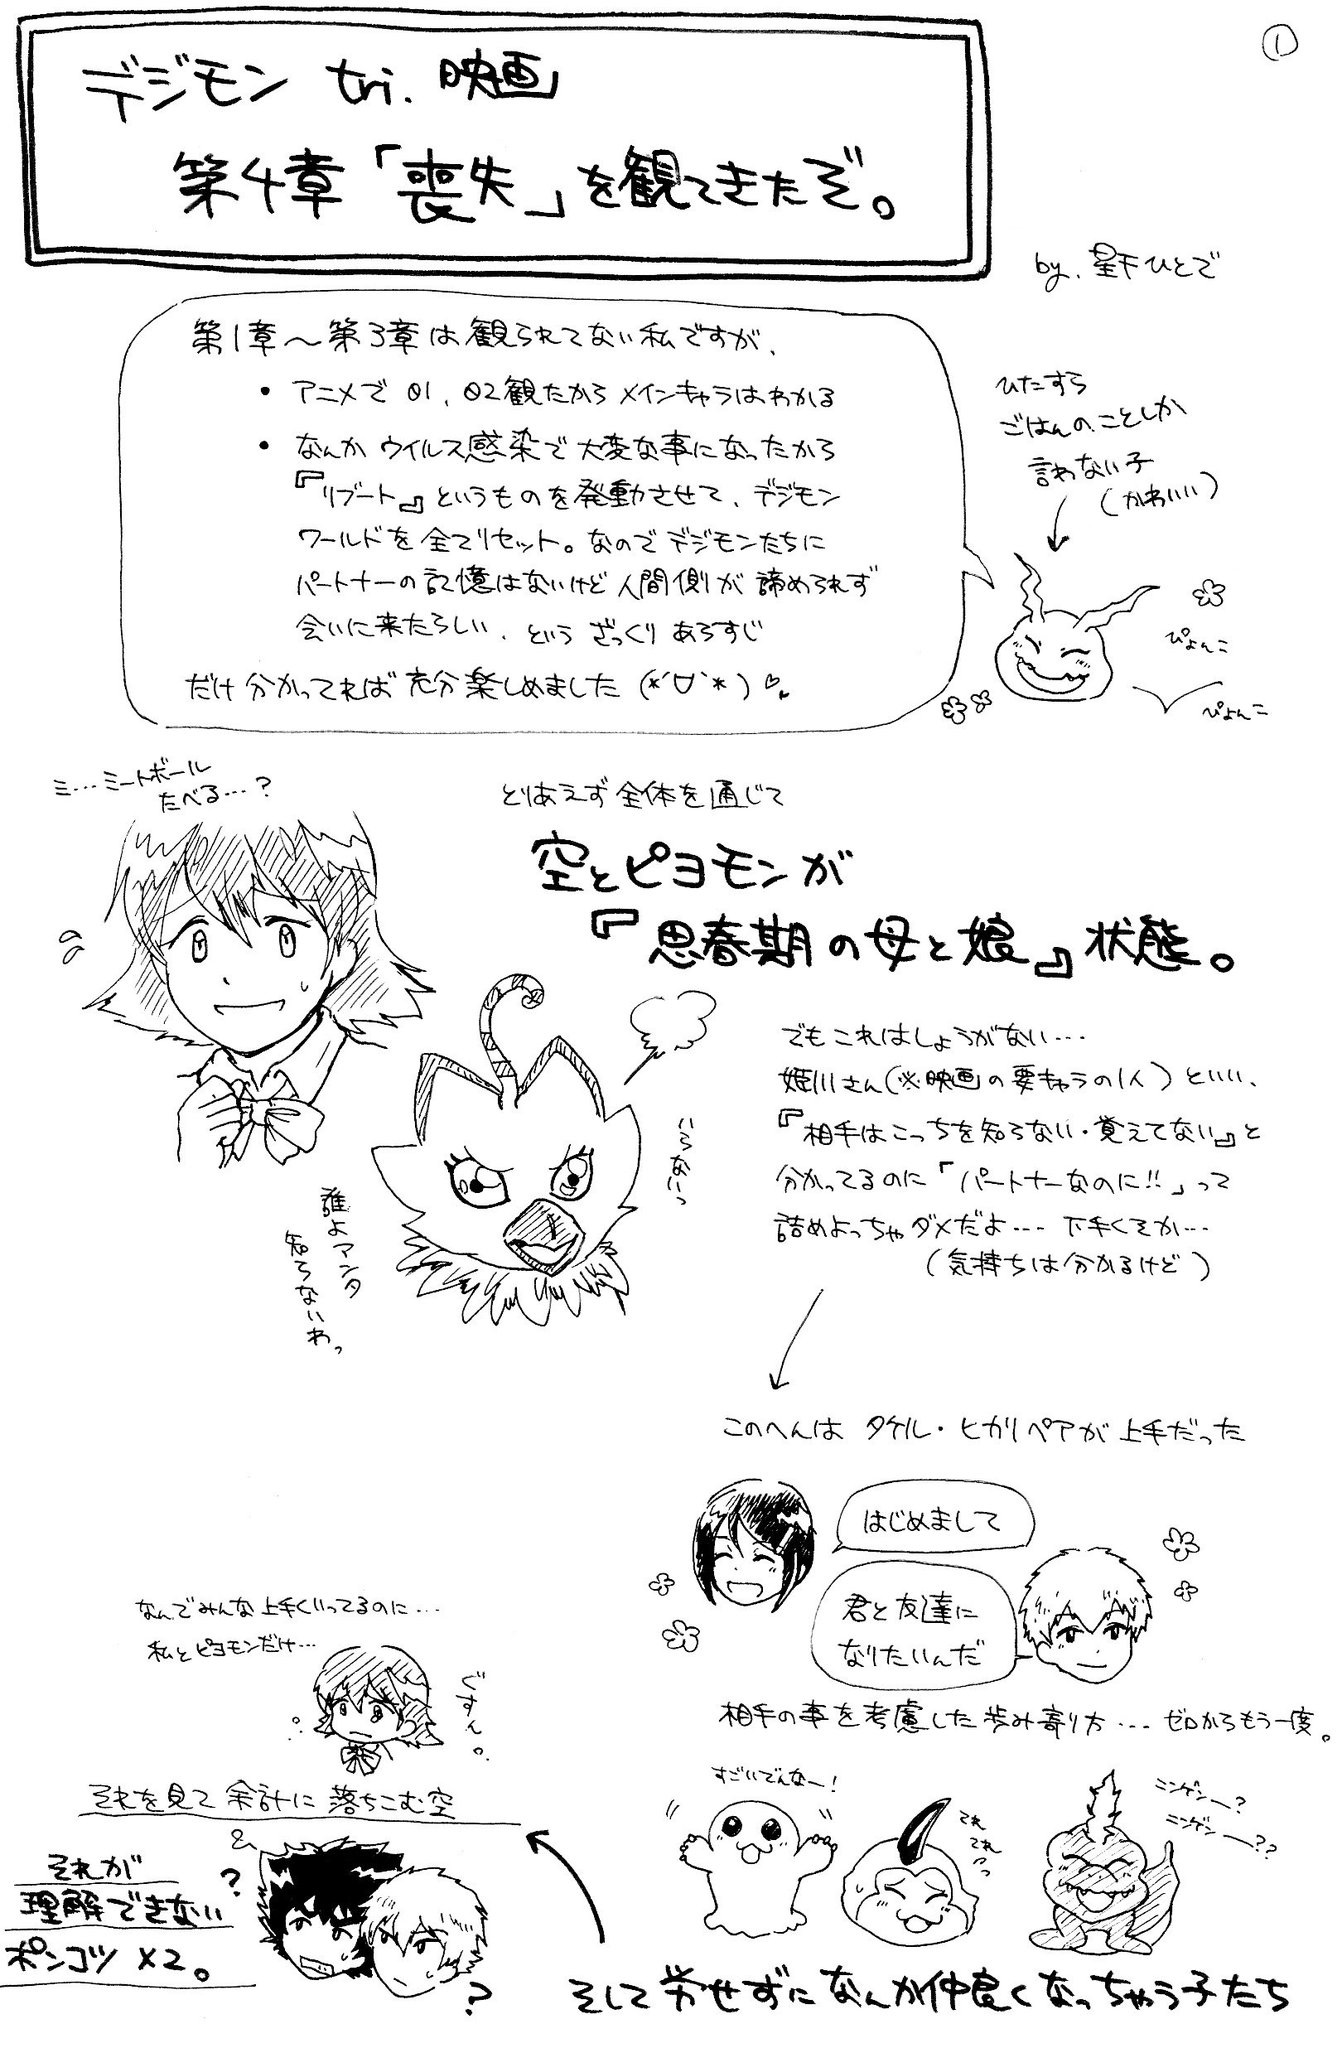 ①
デジモン tri. 映画
第4章「喪失」を観てきたぞ。
by. 星下ひとで
第1章〜第3章は観られてない私ですが、
・アニメで01、02観たからメインキャラはわかる
・なんかウイルス感染で大変な事になったから
『リブート』というものを発動させて、デジモン
ワールドを全てリセット。なのでデジモンたちに
パートナーの記憶はないけど人間側が諦められず
会いに来たらしい、というざっくりあらすじ
だけ分かってれば充分楽しめました(*´▽`*)
ひたすら
ごはんのことしか
言わない子
(かわいい)
ぴょんこ
ぴょんこ
ミ…ミートボール
たべる…?
とりあえず全体を通じて
空とピヨモンが
『思春期の母と娘』状態。
いらないっ
誰よアンタ
知らないわっ
でもこれはしょうがない…
姫川さん(※映画の要キャラの1人)といい、
『相手はこっちを知らない・覚えてない』と
分かってるのに「パートナーなのに!!」って
詰めよっちゃダメだよ… 下手くそか…
(気持ちは分かるけど)
このへんはタケル・ヒカリペアが上手だった
はじめまして
君と友達に
なりたいんだ
相手の事を考慮した歩み寄り方…ゼロからもう一度。
なんでみんな上手くいってるのに…
私とピヨモンだけ…
ですん。
それを見て余計に落ちこむ空
すごいでんなー!
てれ
てれっっ
ニンゲンー?
ニンゲンー??
それが
理解できない
ポンコツ×2。
?
?
そして労せずになんか仲良くなっちゃう子たち